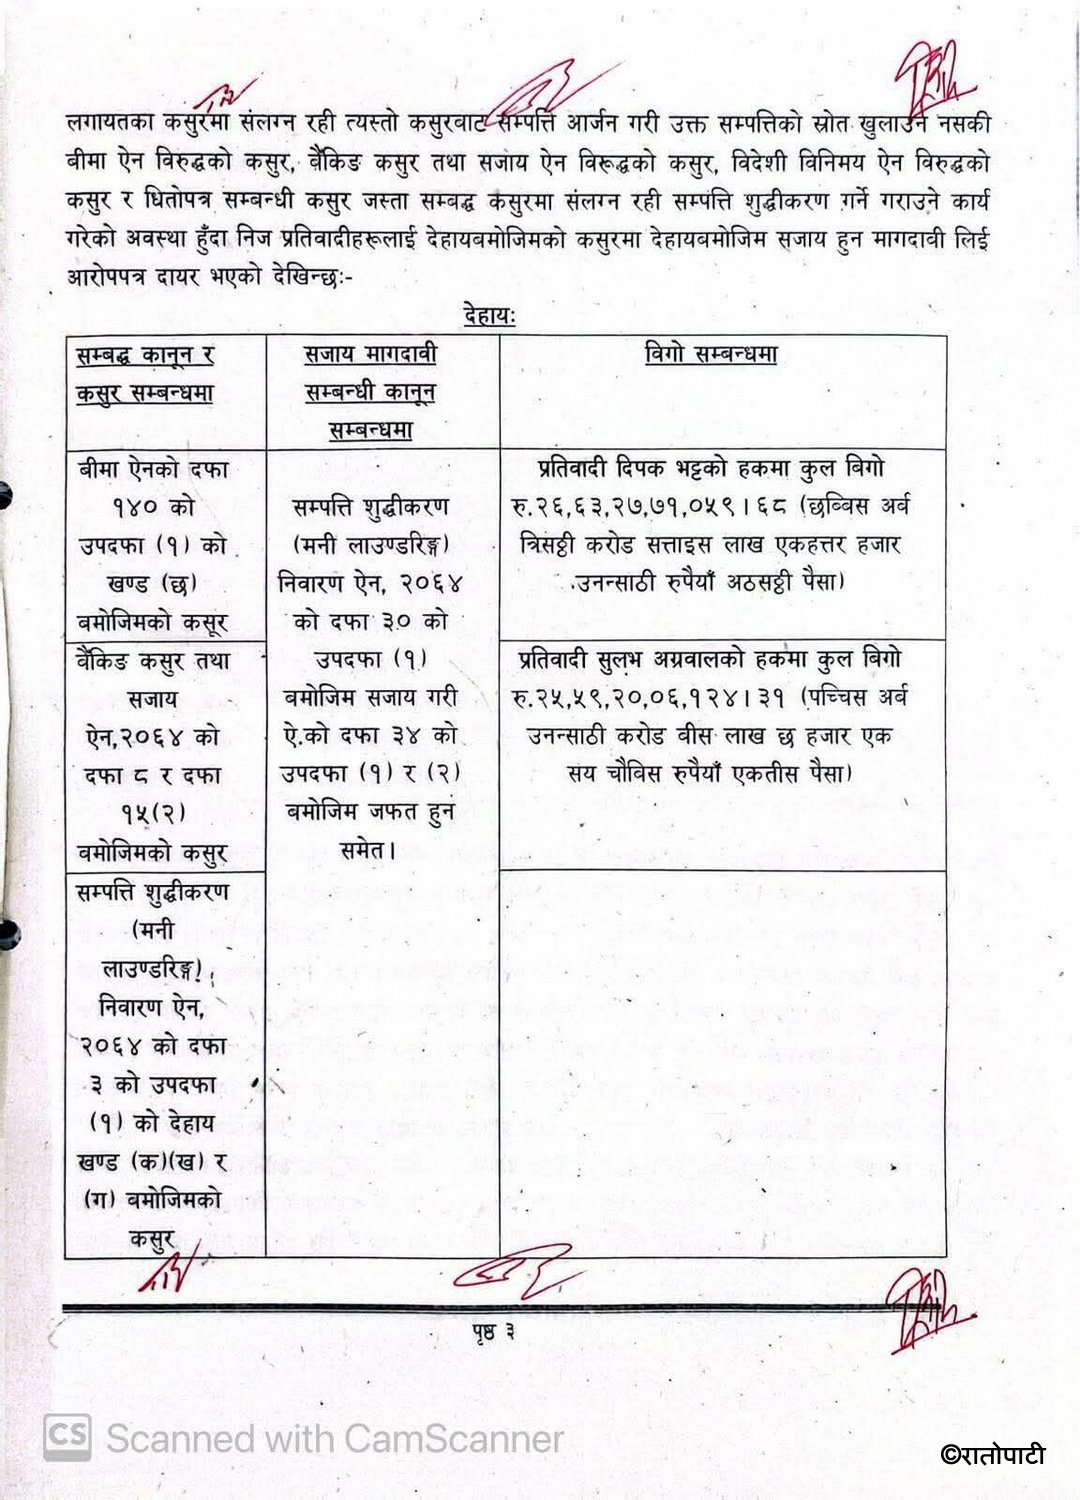 लगायतका कसुरमा संलग्न रही त्यस्तो कसुरबाट सम्पत्ति आर्जन गरी उक्त सम्पत्तिको स्रोत खुलाउन नसकी
बीमा ऐन विरुद्धको कसुर, बैंकिङ कसुर तथा सजाय ऐन विरूद्धको कसुर, विदेशी विनिमय ऐन विरुद्धको
कसुर र धितोपत्र सम्बन्धी कसुर जस्ता सम्बद्ध कसुरमा संलग्न रही सम्पत्ति शुद्धीकरण गर्ने गराउने कार्य
गरेको अवस्था हुँदा निज प्रतिवादीहरूलाई देहायबमोजिमको कसुरमा देहायबमोजिम सजाय हुन मागदावी लिई
आरोपपत्र दायर भएको देखिन्छः-
देहायः
सम्बद्ध कानून र
कसुर सम्बन्धमा
सजाय मागदावी
सम्बन्धी कानून
सम्बन्धमा
विगो सम्बन्धमा
बीमा ऐनको दफा
१४० को
उपदफा (१) को
खण्ड (छ)
बमोजिमको कसूर
सम्पत्ति शुद्धीकरण
(मनी लाउण्डरिङ्ग)
निवारण ऐन, २०६४
को दफा ३० को
उपदफा (१)
बमोजिम सजाय गरी
ऐ.को दफा ३४ को
उपदफा (१) र (२)
बमोजिम जफत हुन
समेत।
प्रतिवादी दिपक भट्टको हकमा कुल बिगो
रु.२६,६३,२७,७१,०५९।६८ (छब्बिस अर्व
त्रिसठ्ठी करोड सत्ताइस लाख एकहत्तर हजार
उनन्साठी रुपैयाँ अठसठ्ठी पैसा)
बैंकिङ कसुर तथा
सजाय
ऐन,२०६४ को
दफा ८ र दफा
१५(२)
बमोजिमको कसुर
प्रतिवादी सुलभ अग्रवालको हकमा कुल बिगो
रु.२५,५९,२०,०६,१२४।३१ (पच्चिस अर्व
उनन्साठी करोड वीस लाख छ हजार एक
सय चौबिस रुपैयाँ एकतीस पैसा)
सम्पत्ति शुद्धीकरण
(मनी
लाउण्डरिङ्ग)
निवारण ऐन,
२०६४ को दफा
३ को उपदफा
(१) को देहाय
खण्ड (क)(ख) र
(ग) बमोजिमको
कसुर
पृष्ठ ३
CS Scanned with CamScanner
©रातोपाटी